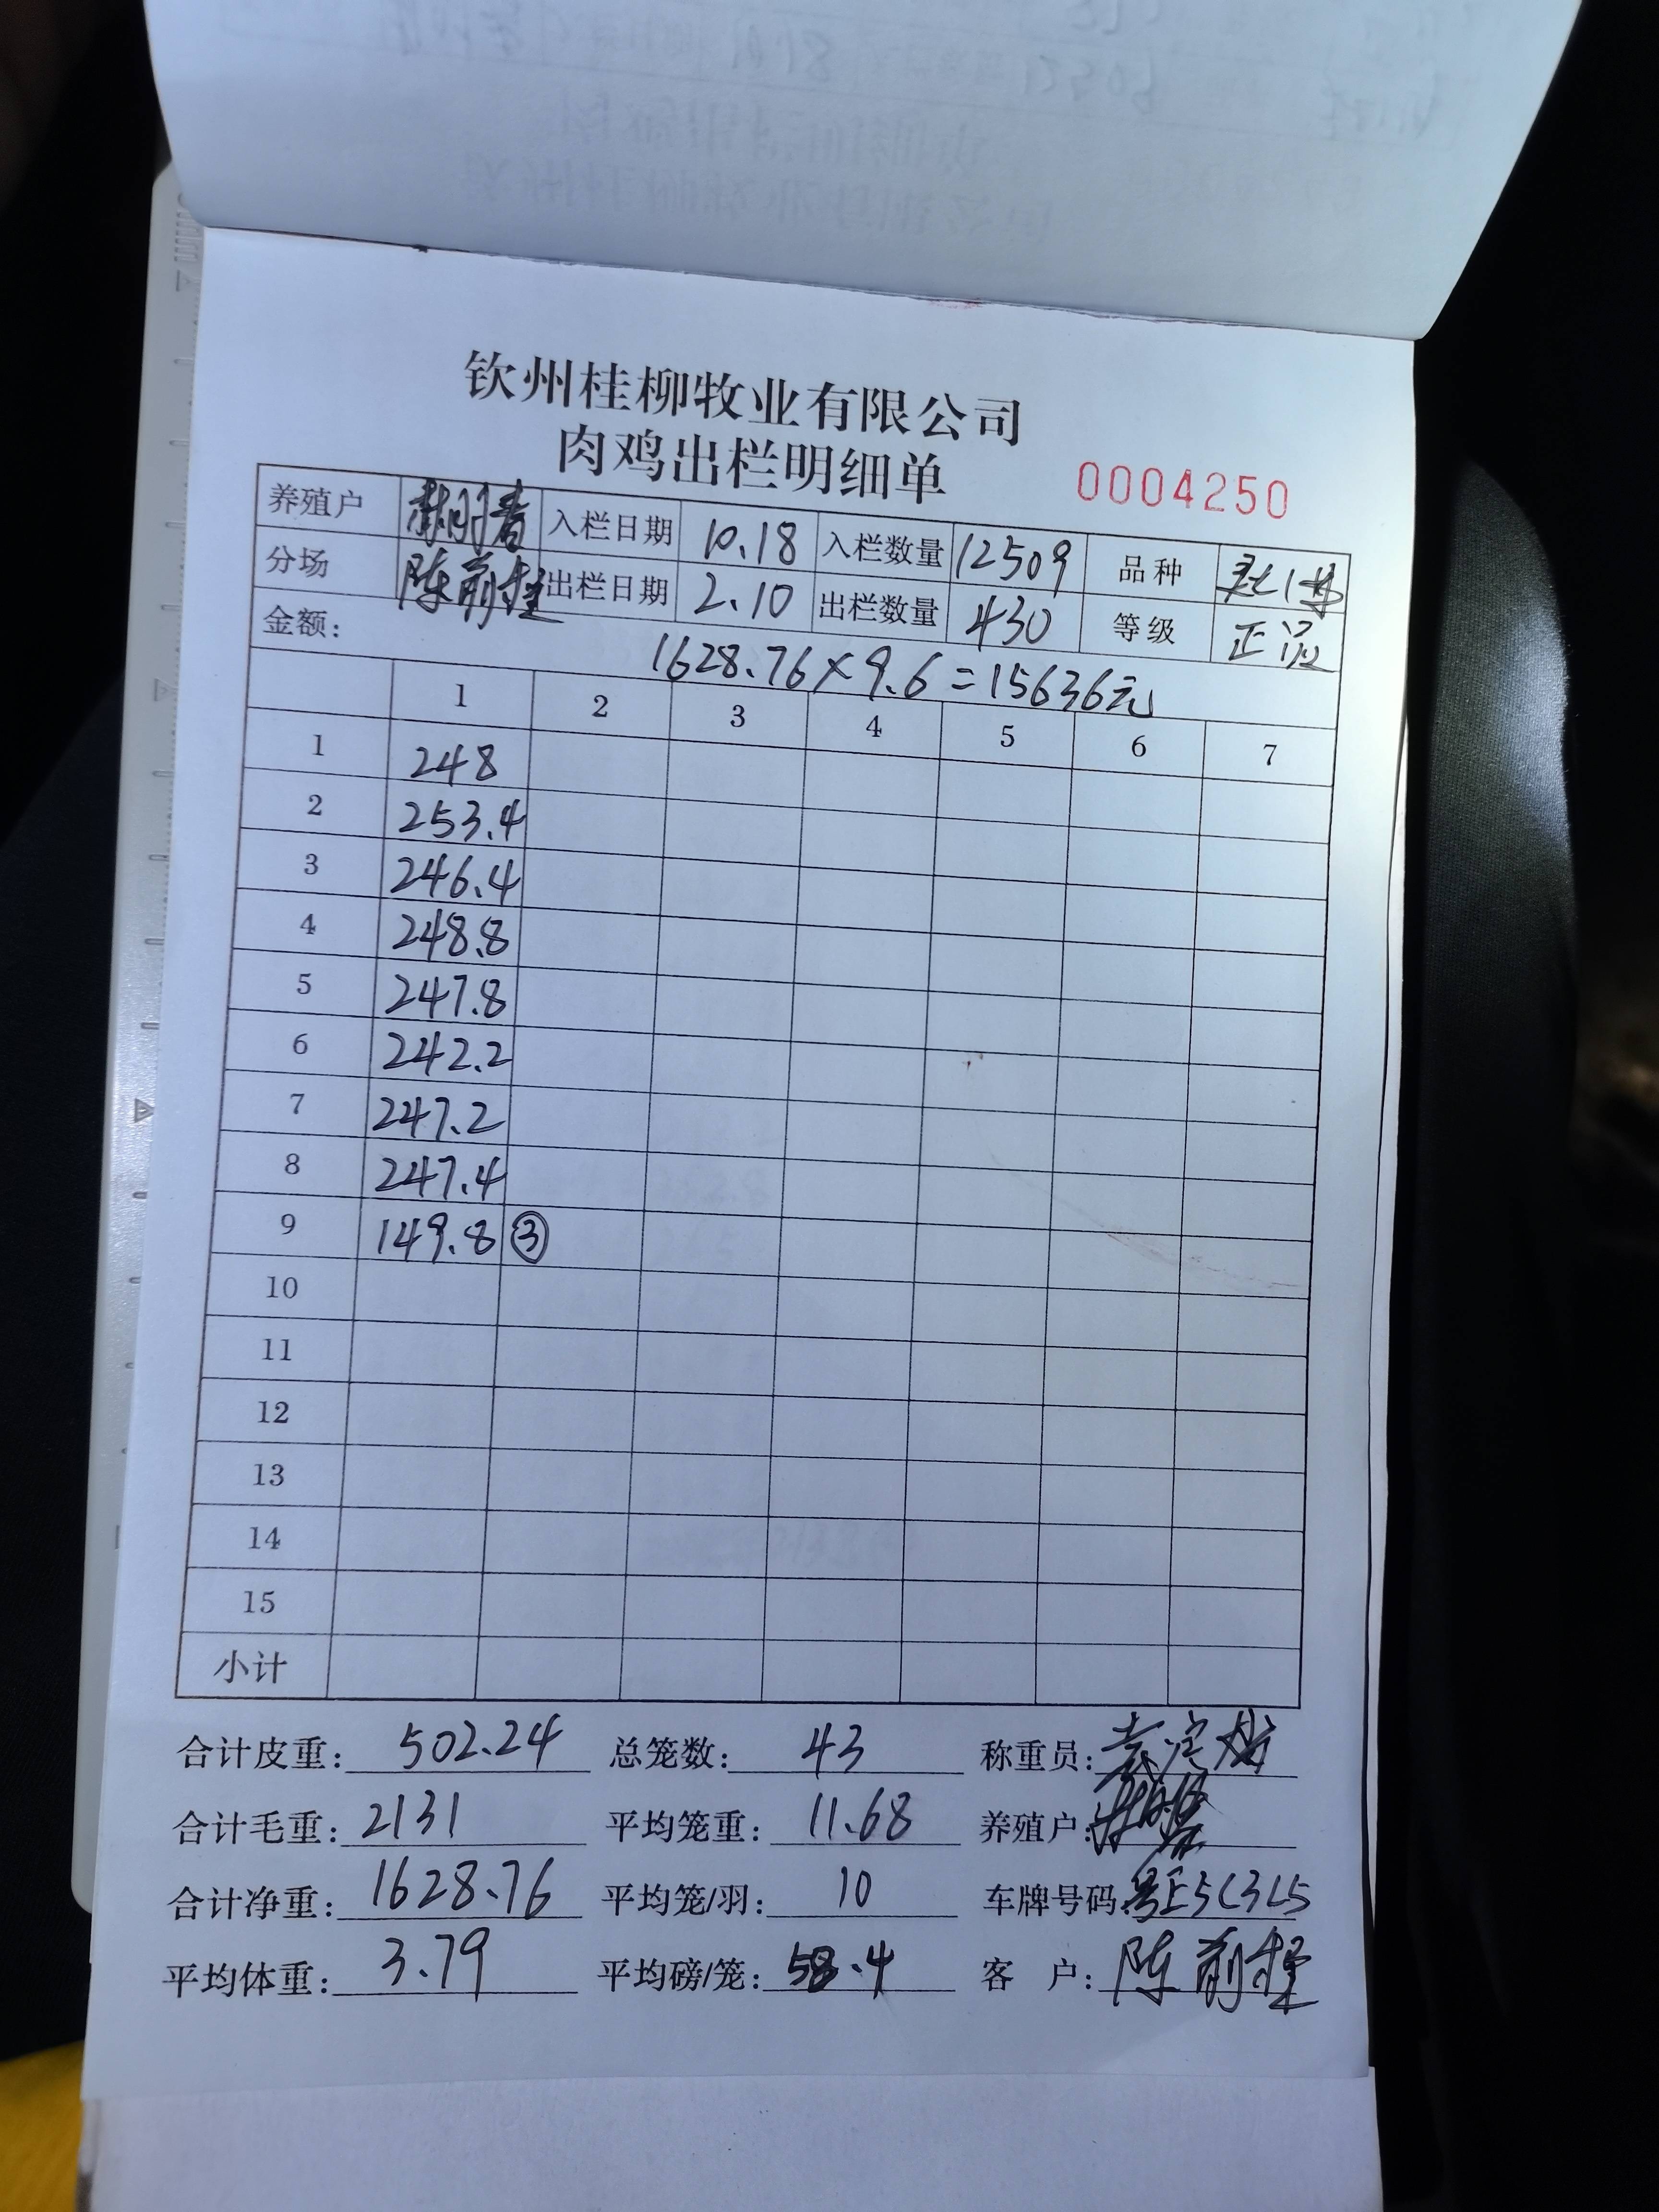 钦州桂柳牧业有限公司
肉鸡出栏明细单 0004250
养殖户 入栏日期 10.18 入栏数量 12509 品种
分场 陈前 出栏日期 2.10 出栏数量 430 等级 正品
金额: 1628.76×9.6=15636元
1 2 3 4 5 6 7
1 248
2 253.4
3 246.4
4 248.8
5 247.8
6 242.2
7 247.2
8 247.4
9 149.8 ③
10
11
12
13
14
15
小计
合计皮重: 502.24 总笼数: 43 称重员:
合计毛重: 2131 平均笼重: 11.68 养殖户:
合计净重: 1628.76 平均笼/羽: 10 车牌号码:
平均体重: 3.79 平均磅/笼: 58.4 客 户: 陈前